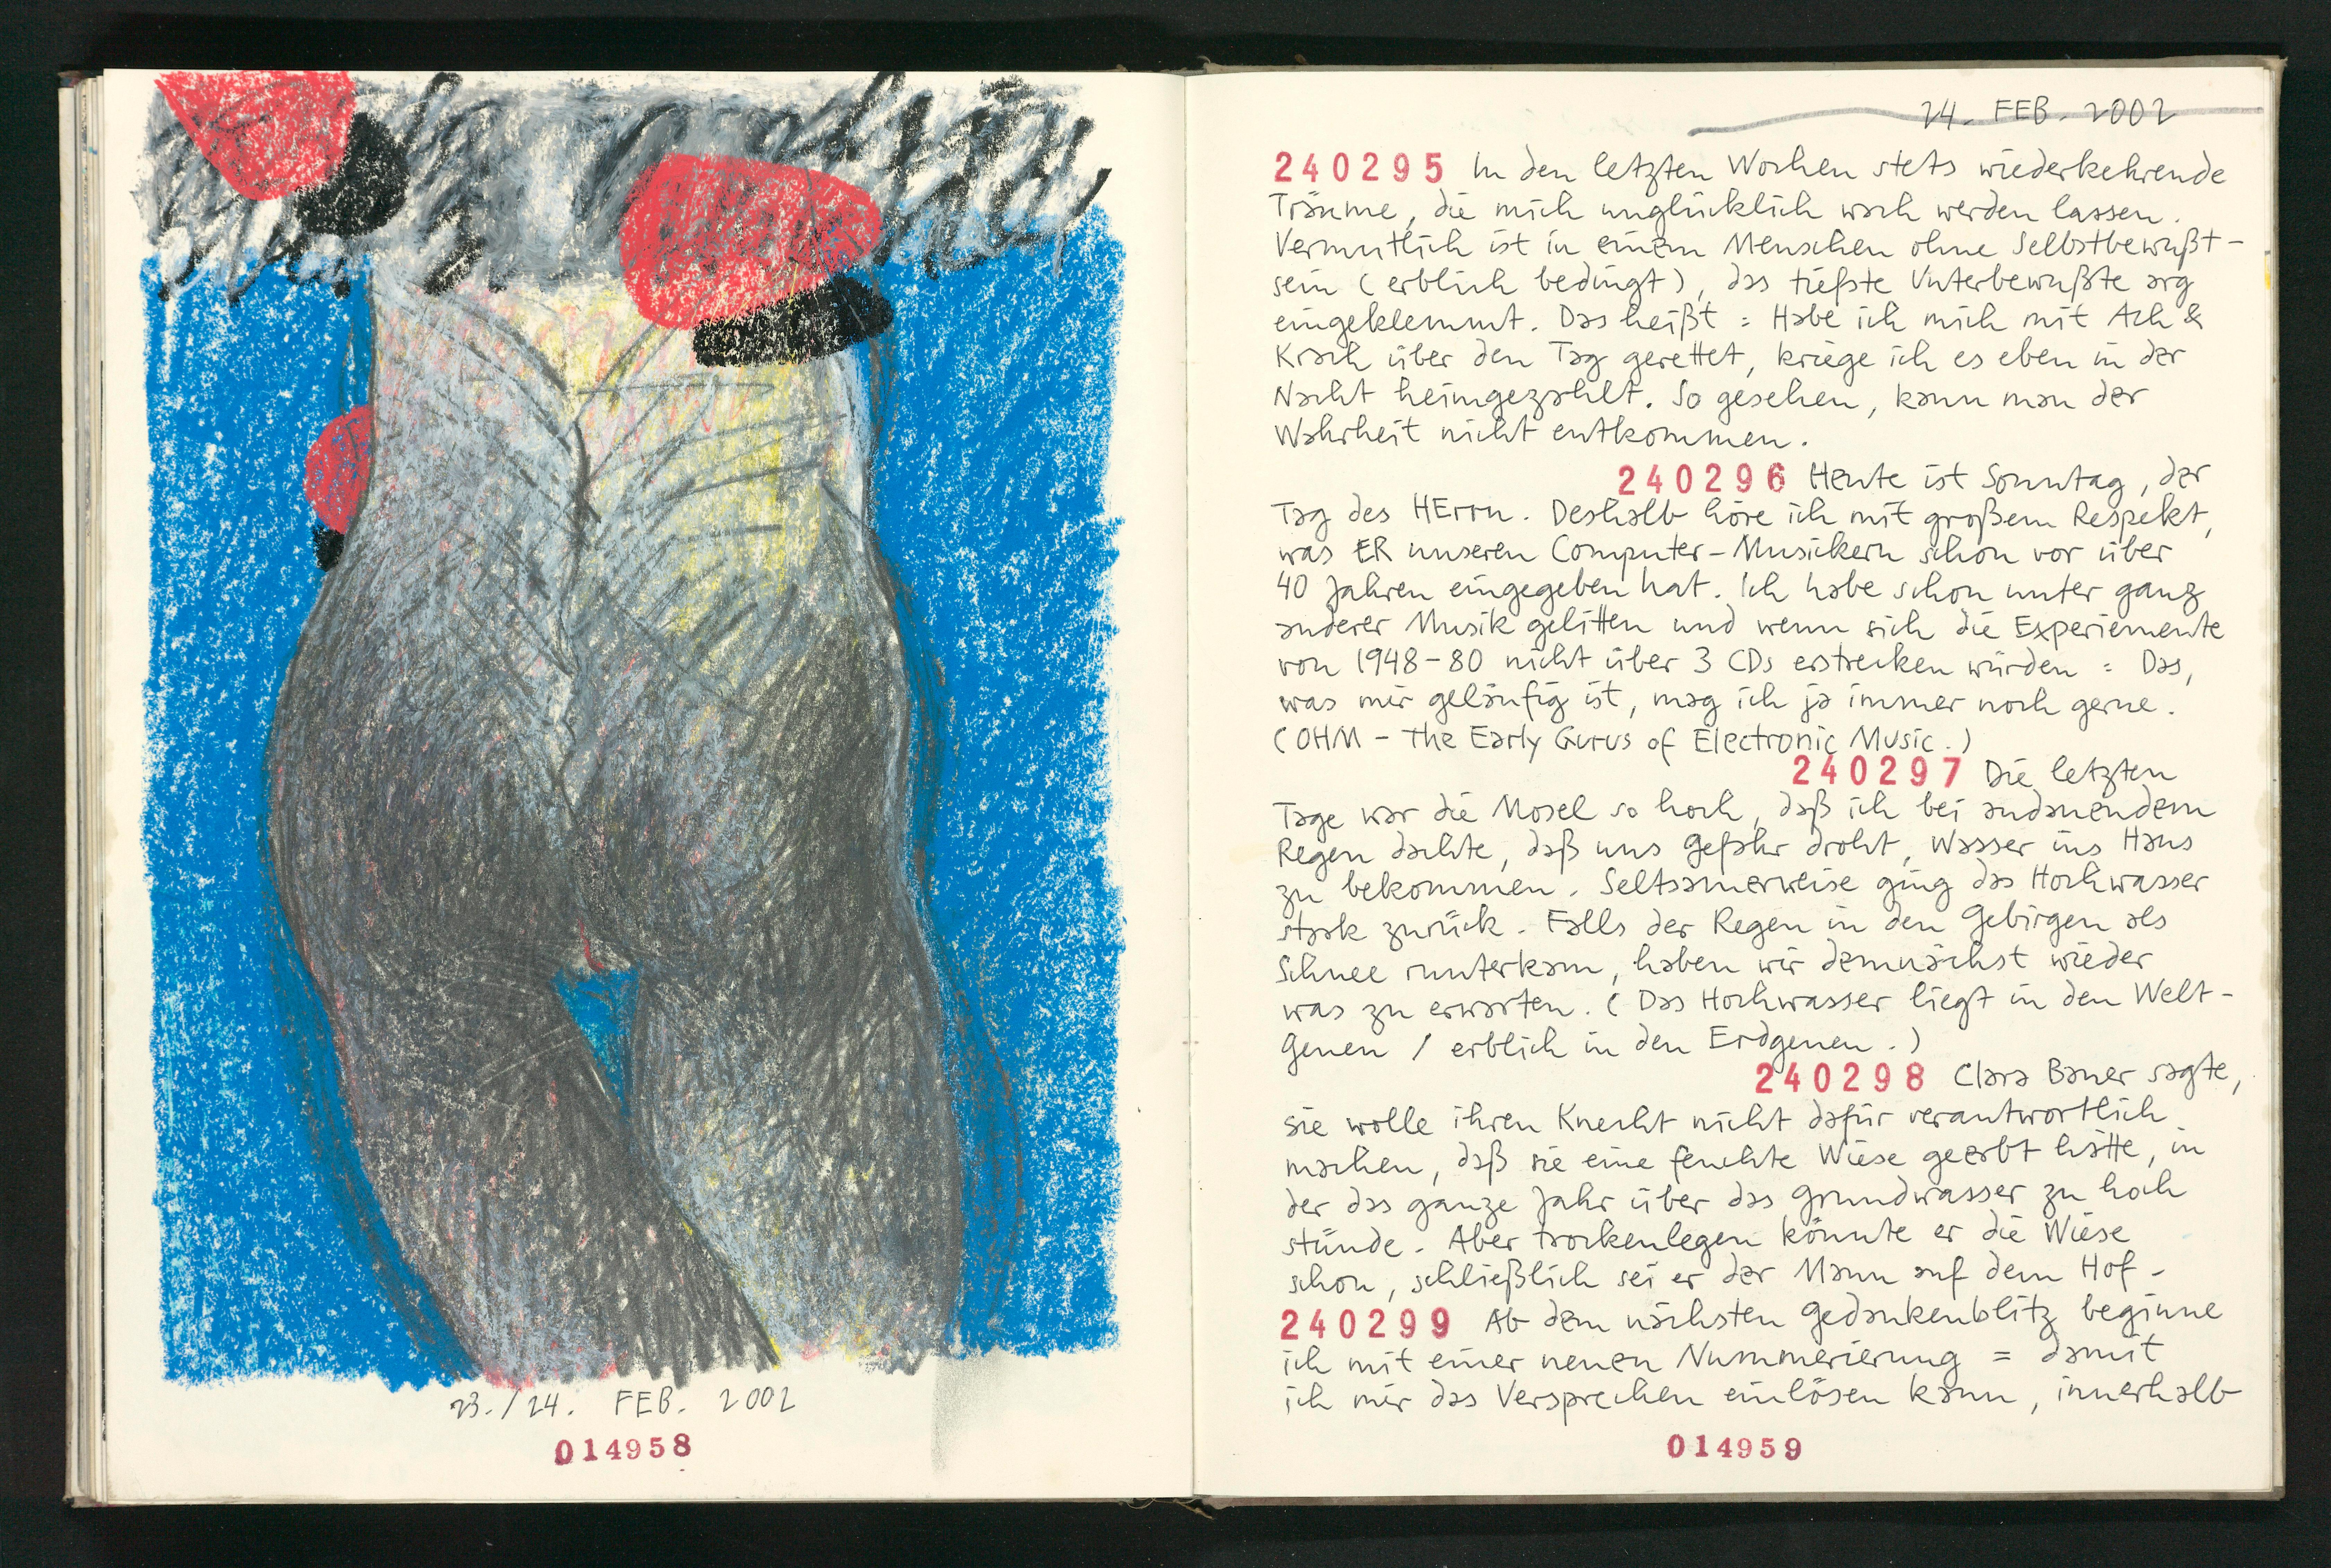 23./24. FEB. 2002
014958
24. FEB. 2002
240295 In den letzten Wochen stets wiederkehrende
Träume, die mich unglücklich wach werden lassen.
Vermutlich ist in einem Menschen ohne Selbstbewußt-
sein (erblich bedingt), das tiefste Unterbewußte arg
eingeklemmt. Das heißt : Habe ich mich mit Ach &
Krach über den Tag gerettet, kriege ich es eben in der
Nacht heimgezahlt. So gesehen, kann man der
Wahrheit nicht entkommen.
240296 Heute ist Sonntag, der
Tag des HErrn. Deshalb höre ich mit großem Respekt,
was ER unseren Computer-Musikern schon vor über
40 Jahren eingegeben hat. Ich habe schon unter ganz
anderer Musik gelitten und wenn sich die Experiemente
von 1948-80 nicht über 3 CDs erstrecken würden : Das,
was mir geläufig ist, mag ich ja immer noch gerne.
(OHM - The Early Gurus of Electronic Music.)
240297 Die letzten
Tage war die Mosel so hoch, daß ich bei andauendem
Regen dachte, daß uns Gefahr droht, Wasser ins Haus
zu bekommen. Seltsamerweise ging das Hochwasser
stark zurück. Falls der Regen in den Gebirgen als
Schnee runterkam, haben wir demnächst wieder
was zu erwarten. (Das Hochwasser liegt in den Welt-
Genen / erblich in den Erdgenen.)
240298 Clara Bauer sagte,
sie wolle ihren Knecht nicht dafür verantwortlich
machen, daß sie eine feuchte Wiese geerbt hätte, in
der das ganze Jahr über das Grundwasser zu hoch
stünde. Aber trockenlegen könnte er die Wiese
schon, schließlich sei er der Mann auf dem Hof.
240299 Ab dem nächsten Gedankenblitz beginne
ich mit einer neuen Nummerierung = damit
ich mir das Versprechen einlösen kann, innerhalb
014959